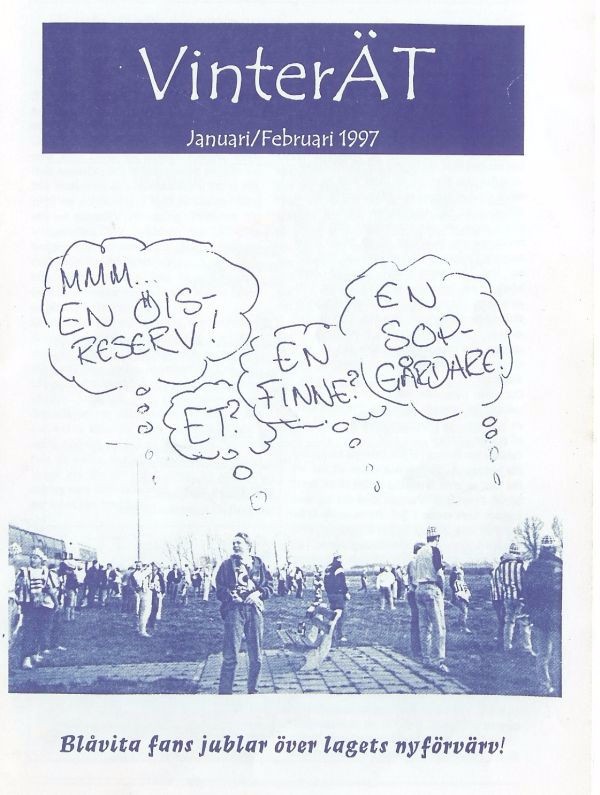 VinterÄT
Januari/Februari 1997
MMM...
EN ÖIS-
RESERV!
ET?
EN
FINNE?
EN
SOP-
GÅRDARE!
Blåvita fans jublar över lagets nyförvärv!